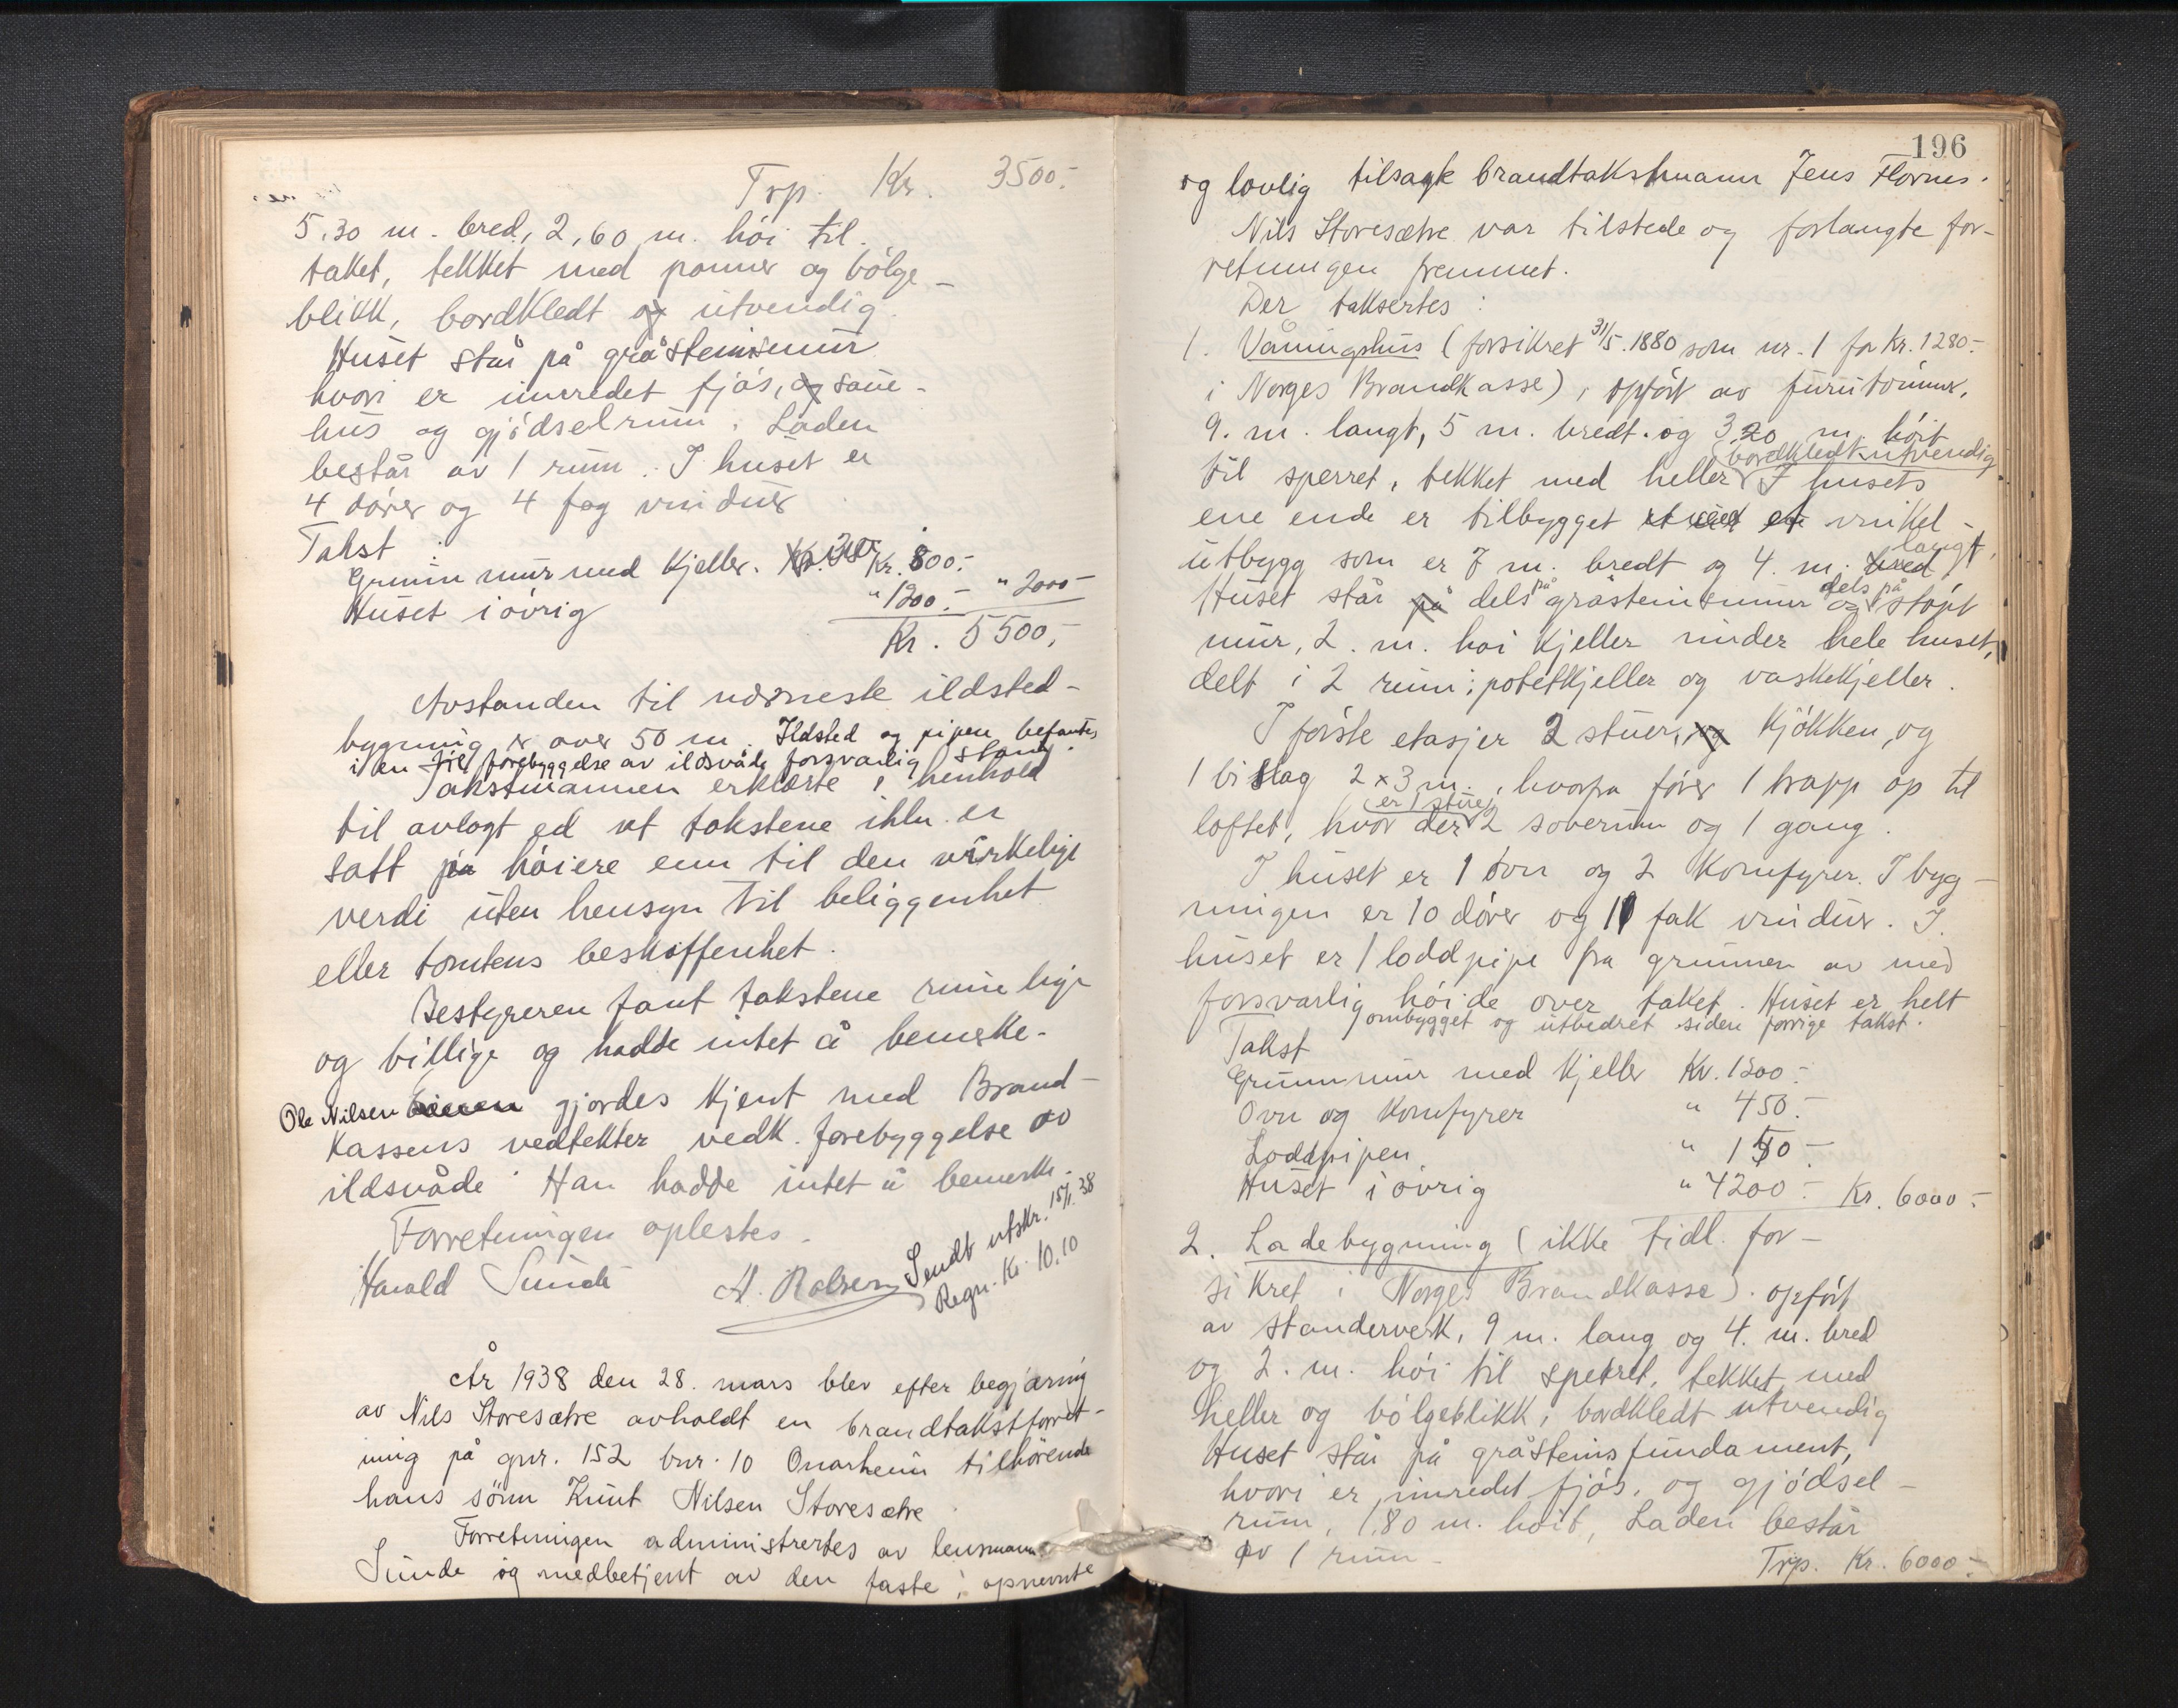 Trp. Kr. 3500.-
5,30 m. bred, 2,60 m. høi til
taket, tekket med panner og bølge-
blikk, bordkledt og utvendig.
Huset står på gråsteinsmur
hvori er innredet fjøs, og saue-
hus og gjødselrum. Laden
består av 1 rum. I huset er
4 dører og 4 fag vinduer
Takst:
Grunnmur med kjeller. Kr. 800.-
Huset i øvrig " 1200.- " 2000.-
Kr. 5500,-
Avstanden til nærmeste ildsted-
bygning er over 50 m. Ildsted og pipen befantes
i en til forebyggelse av ildsvåde forsvarlig stand.
Takstmannen erklærte i henhold
til avlagt ed at takstene ikke er
satt på høiere enn til den virkelige
verdi uten hensyn til beliggenhet
eller tomtens beskaffenhet.
Bestyreren fant takstene rimelige
og billige og hadde intet å bemerke.
Ole Nilsen gjordes kjent med Brand-
kassens vedtekter vedk. forebyggelse av
ildsvåde. Han hadde intet å bemerke.
Forretningen oplestes.
Harald Sunde A. Rolsen
Sendt utskr. 15/1. 38
Regn. Kr. 10.10
År 1938 den 28. mars blev efter begjæring
av Nils Storesætre avholdt en brandtakstforret-
ning på gnr. 152 bnr. 10 Onarheim tilhørende
hans sønn Knut Nilsen Storesætre
Forretningen administrertes av lensmann
Sunde og medbetjent av den faste, opnevnte
196
og lovlig tilsagte brandtakstmann Jens Flornes.
Nils Storesætre var tilstede og forlangte for-
retningen fremmet.
Der taksertes:
1. Våningshus (forsikret 31/5.1880 som nr. 1 for Kr. 1280.-
i Norges Brandkasse), opført av furutømmer,
9. m. langt, 5 m. bredt. og 3,20 m. høit
bordkledt utvendig
til sperret, tekket med heller. I husets
ene ende er tilbygget et vinkel-
utbygg som er 7 m. bredt og 4. m. bred langt,
Huset står på dels på gråsteinsmur og dels på støpt
mur, 2. m. høi kjeller under hele huset,
delt i 2 rum: potetkjeller og vaskekjeller.
I første etasjer 2 stuer, og kjøkken, og
1 bislag 2 x 3 m., hvorfra fører 1 trapp op til
loftet, hvor der er 1 stue, 2 soverum og 1 gang.
I huset er 1 ovn og 2 komfyrer. I byg-
ningen er 10 dører og 11 fak vinduer. I
huset er 1 loddpipe fra grunnen av med
forsvarlig høide over taket. Huset er helt
ombygget og utbedret siden forrige takst.
Takst
Grunnmur med kjeller Kr. 1200.-
Ovn og komfyrer " 450.-
Loddpipen " 150.-
Huset i øvrig " 4200.- Kr. 6000.-
2. Ladebygning (ikke tidl. for-
sikret i Norges Brandkasse). opført
av standerverk, 9 m. lang og 4. m. bred
og 2. m. høi til sperret, tekket med
heller og bølgeblikk, bordkledt utvendig
Huset står på gråsteinsfundament,
hvori er innredet fjøs, og gjødsel-
rum, 1,80 m. høit, Laden består
av 1 rum.
Trp. Kr. 6000.-